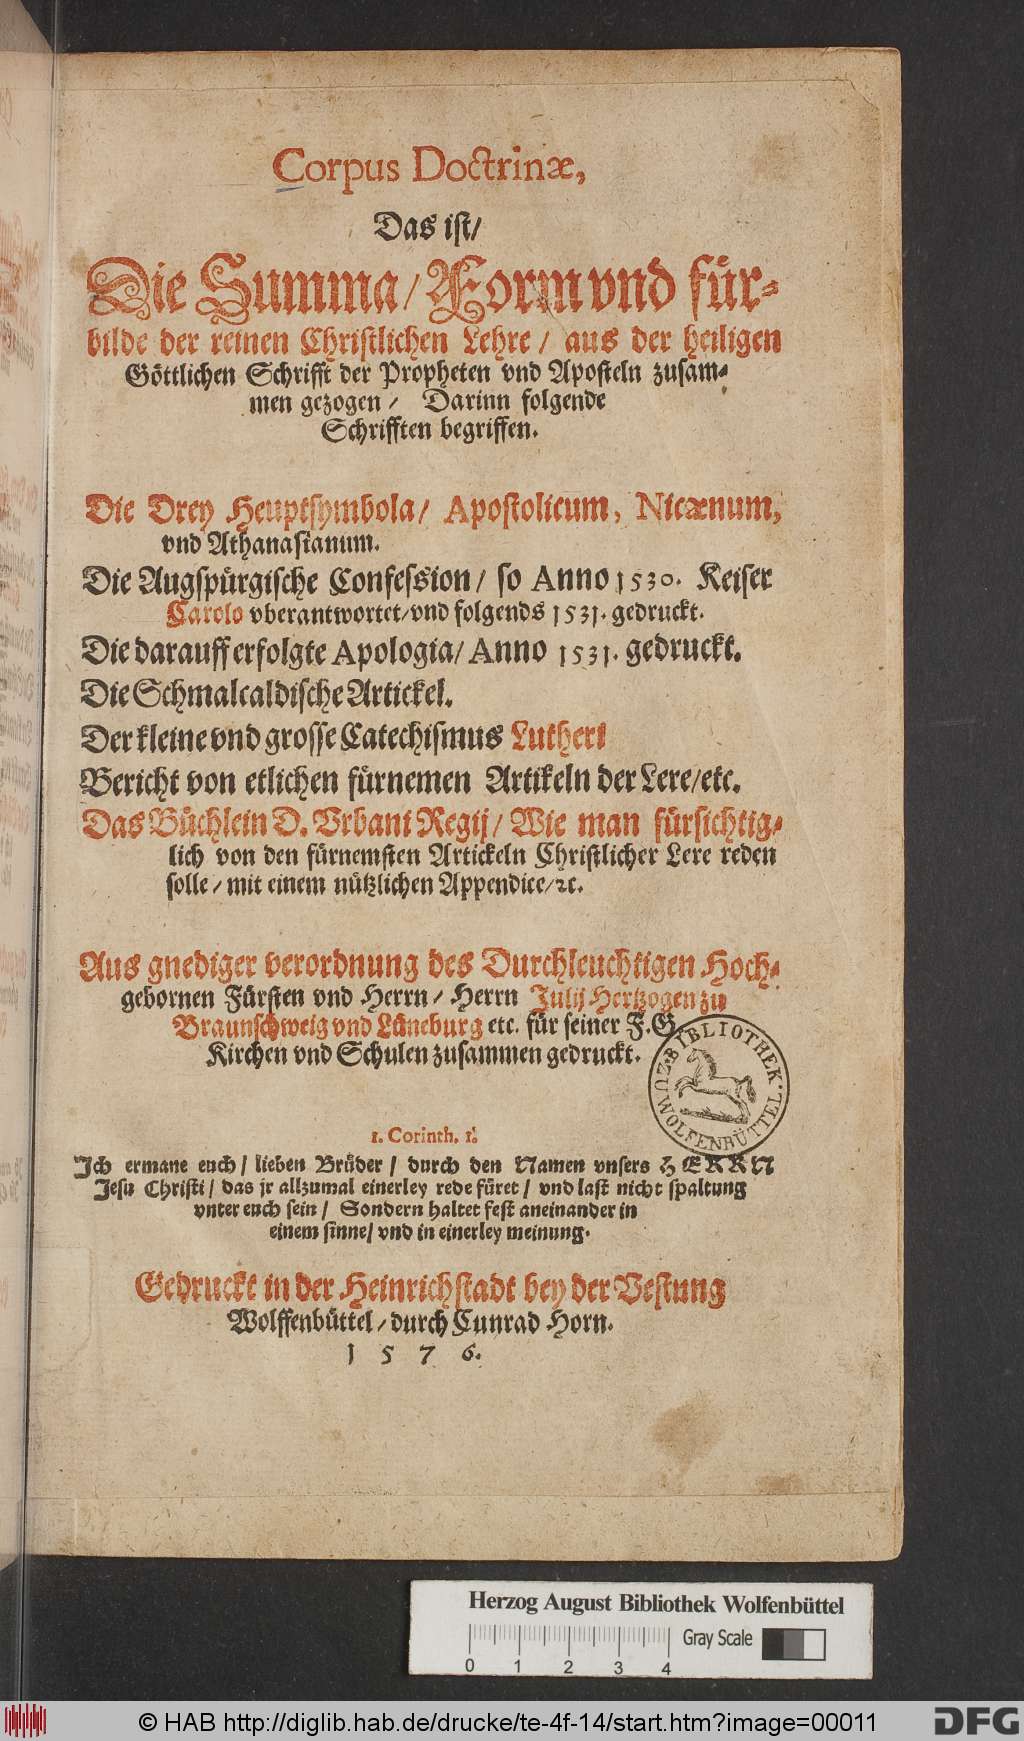 Corpus Doctrinæ,
Das ist/
Die Summa/ Form vnd für-
bilde der reinen Christlichen Lehre/ aus der heiligen
Göttlichen Schrifft der Propheten vnd Aposteln zusam-
men gezogen/ Darinn folgende
Schrifften begriffen.
Die Drey Heuptsymbola/ Apostolicum, Nicænum,
vnd Athanasianum.
Die Augspürgische Confession/ so Anno 1530. Keiser
Carolo vberantwortet/ vnd folgends 1531. gedruckt.
Die darauff erfolgte Apologia/ Anno 1531. gedruckt.
Die Schmalcaldische Artickel.
Der kleine vnd grosse Catechismus Lutheri
Bericht von etlichen fürnemen Artikeln der Lere/ etc.
Das Büchlein D. Vrbani Regij/ Wie man fürsichtig-
lich von den fürnemsten Artickeln Christlicher Lere reden
solle/ mit einem nützlichen Appendice/ ꝛc.
Aus gnediger verordnung des Durchleuchtigen Hoch-
gebornen Fürsten vnd Herrn/ Herrn Julij Hertzogen zu
Braunschweig vnd Lüneburg etc. für seiner F.G.
Kirchen vnd Schulen zusammen gedruckt.
BIBLIOTHEK ZU WOLFENBÜTTEL
1. Corinth. 1.
Ich ermane euch/ lieben Brüder/ durch den Namen vnsers HERRN
Jesu Christi/ das jr allzumal einerley rede füret/ vnd last nicht spaltung
vnter euch sein/ Sondern haltet fest aneinander in
einem sinne/ vnd in einerley meinung.
Gedruckt in der Heinrichstadt bey der Vestung
Wolffenbüttel/ durch Cunrad Horn.
1576.
Herzog August Bibliothek Wolfenbüttel
Gray Scale
0 1 2 3 4
© HAB http://diglib.hab.de/drucke/te-4f-14/start.htm?image=00011
DFG